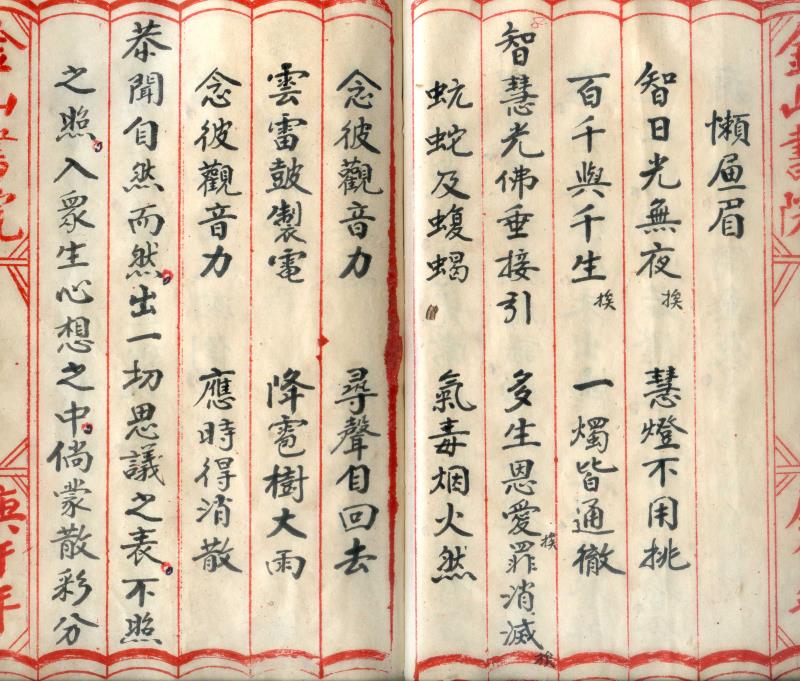 金山書院
懶画眉
智日光無夜挨 慧燈不用挑
百千與千生挨 一燭皆通徹
智慧光佛垂接引 多生恩愛挨罪消滅挨
蚖蛇及蝮蝎 氣毒烟火然
念彼觀音力 尋聲自回去
雲雷鼓製電 降雹樹大雨
念彼觀音力 應時得消散
恭聞自然而然出一切思議之表不照
之照入眾生心想之中倘蒙散彩分
金山書院
庚午年